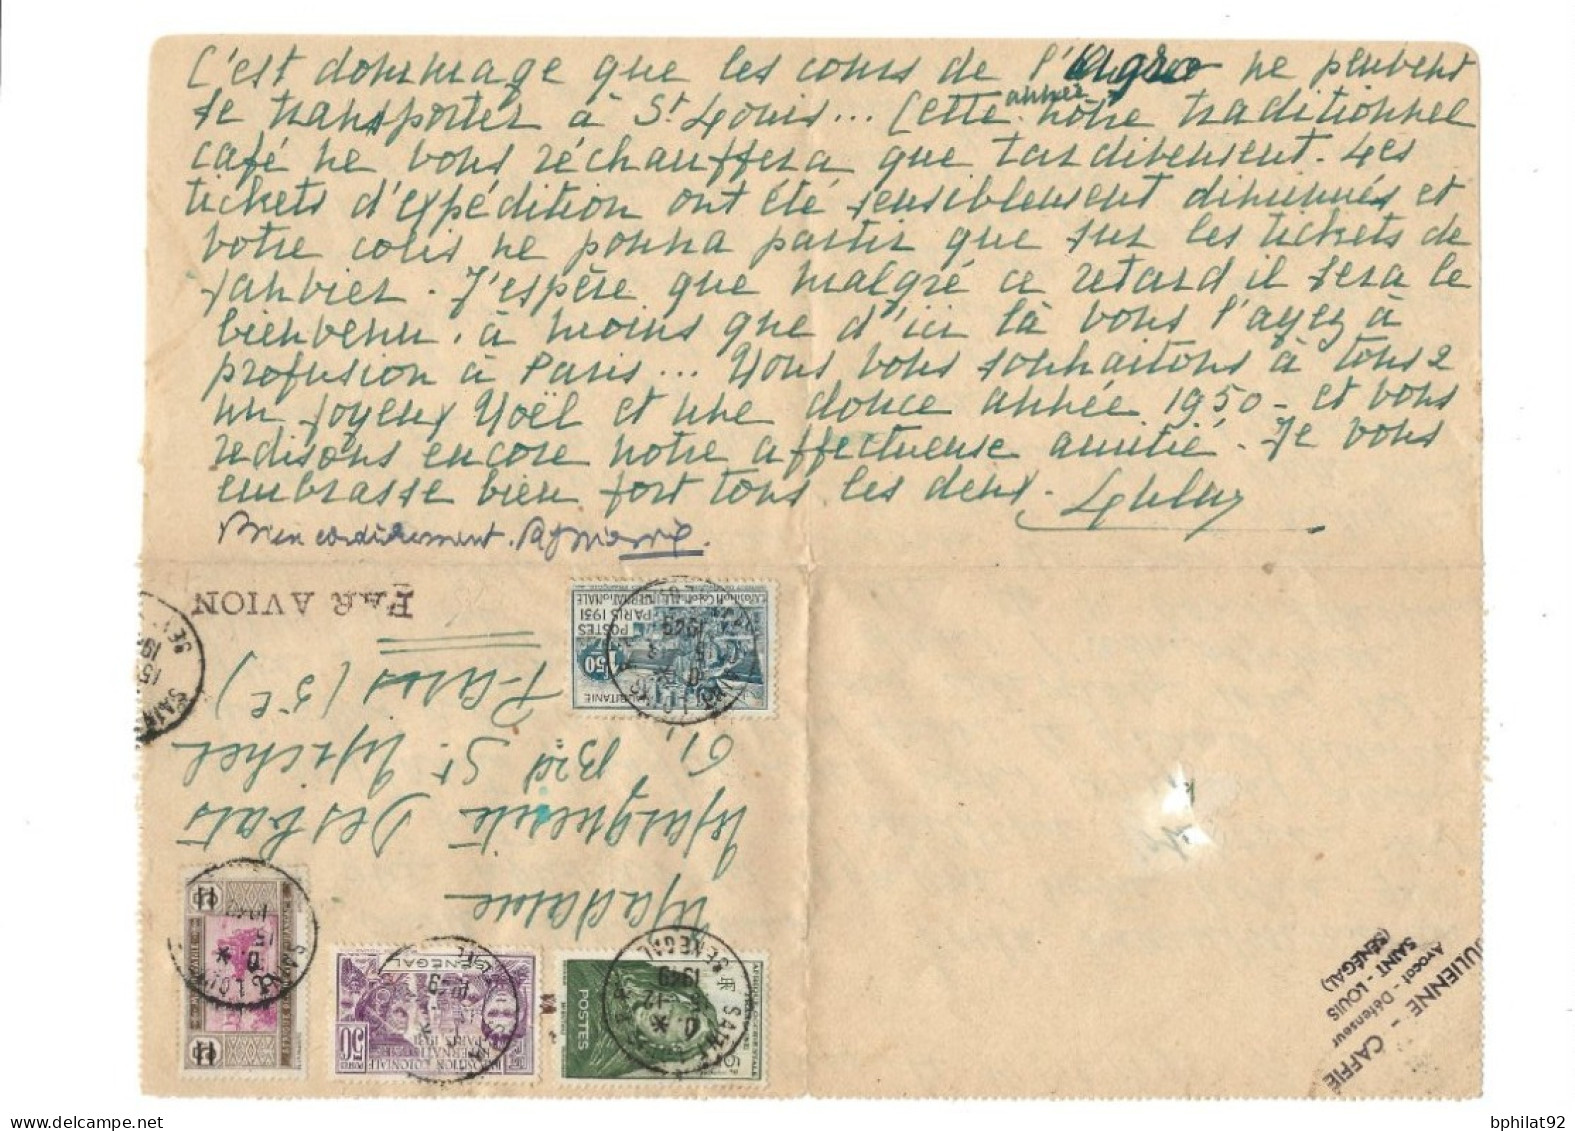 C'est dommage que les cours de l'Agro ne peuvent
se transporter à St Louis... Cette année notre traditionnel
café ne vous réchauffera que tardivement. Les
tickets d'expédition ont été sensiblement diminués et
votre colis ne pourra partir que sur les tickets de
Janvier. J'espère que malgré ce retard il sera le
bienvenu, à moins que d'ici là vous l'ayez à
profusion à Paris... Nous vous souhaitons à tous 2
un joyeux Noël et une douce année 1950 - et vous
redisons encore notre affectueuse amitié. Je vous
embrasse bien fort tous les deux.
Bien cordialement.
PAR AVION
Madame
Marguerite Desbats
61 Bld St. Michel
Paris (5e)
EXPOSITION COLONIALE INTERNATIONALE
PARIS 1931
POSTES
1f50
SÉNÉGAL
EXPOSITION COLONIALE
INTERNATIONALE
PARIS 1931
50c
POSTES
SAINT LOUIS
SENEGAL
15 12
1949
ULIENNE - CAFFIE
Avocat - Défenseur
SAINT - LOUIS
(SÉNÉGAL)
bphilat92